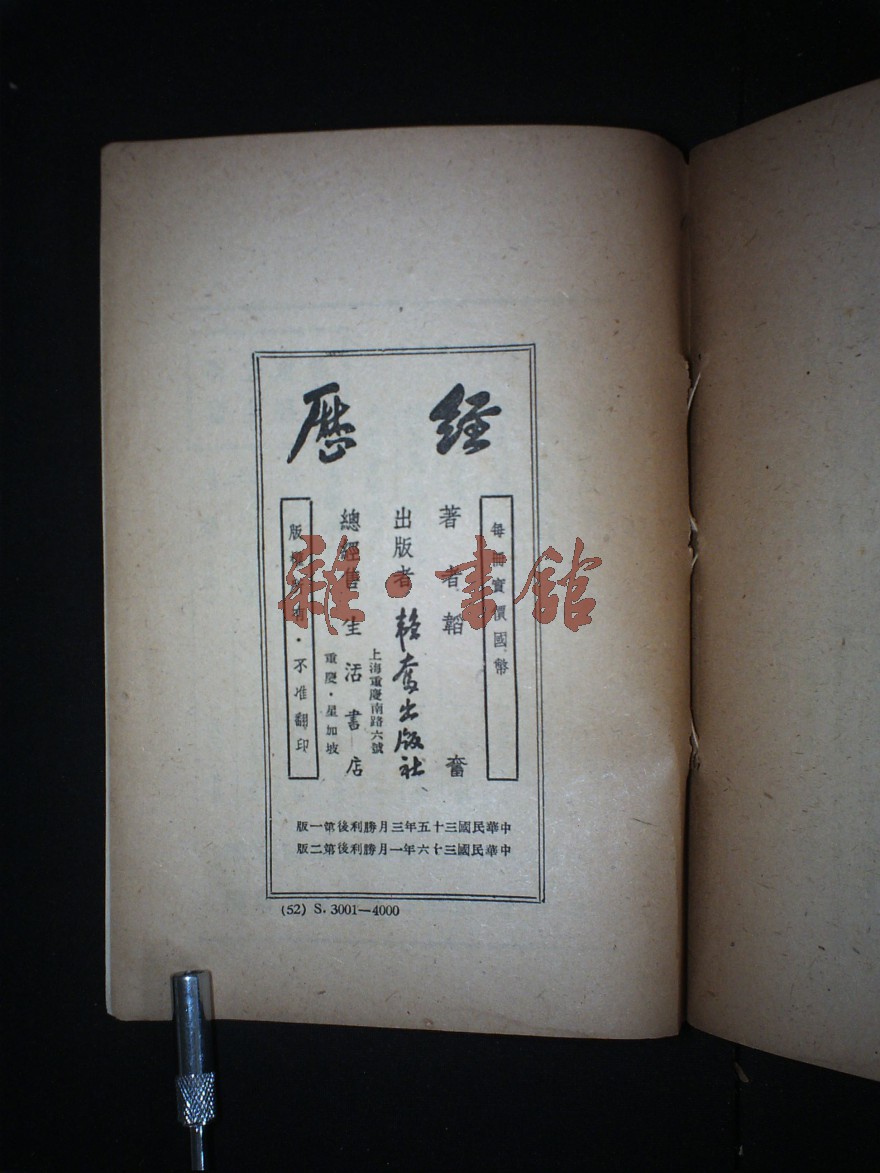 經歷
每冊實價國幣
著者韜奮
出版者韜奮出版社
上海重慶南路六號
總經售生活書店
重慶·星加坡
版權所有·不准翻印
中華民國三十五年三月勝利後第一版
中華民國三十六年一月勝利後第二版
(52) S. 3001—4000
雜·書館